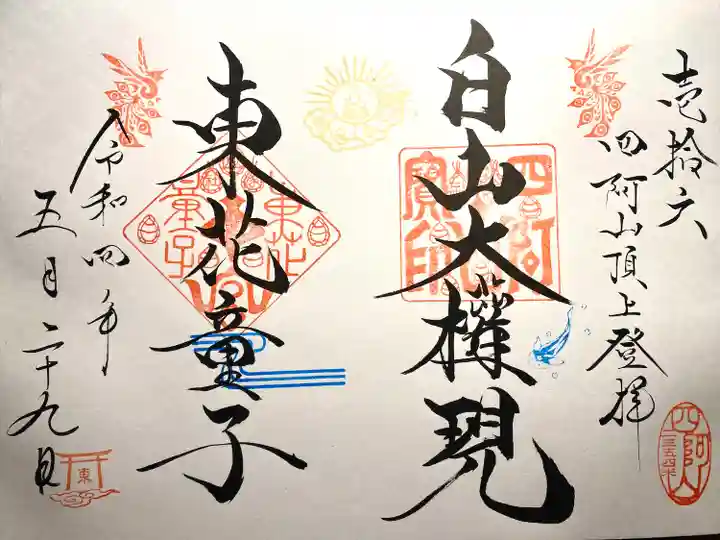 壱拾六
四阿山頂上登拝
白山大権現
四阿
寳印
東花童子
東花
童子
令和四年
五月二十九日
東
四阿山
二三五四米